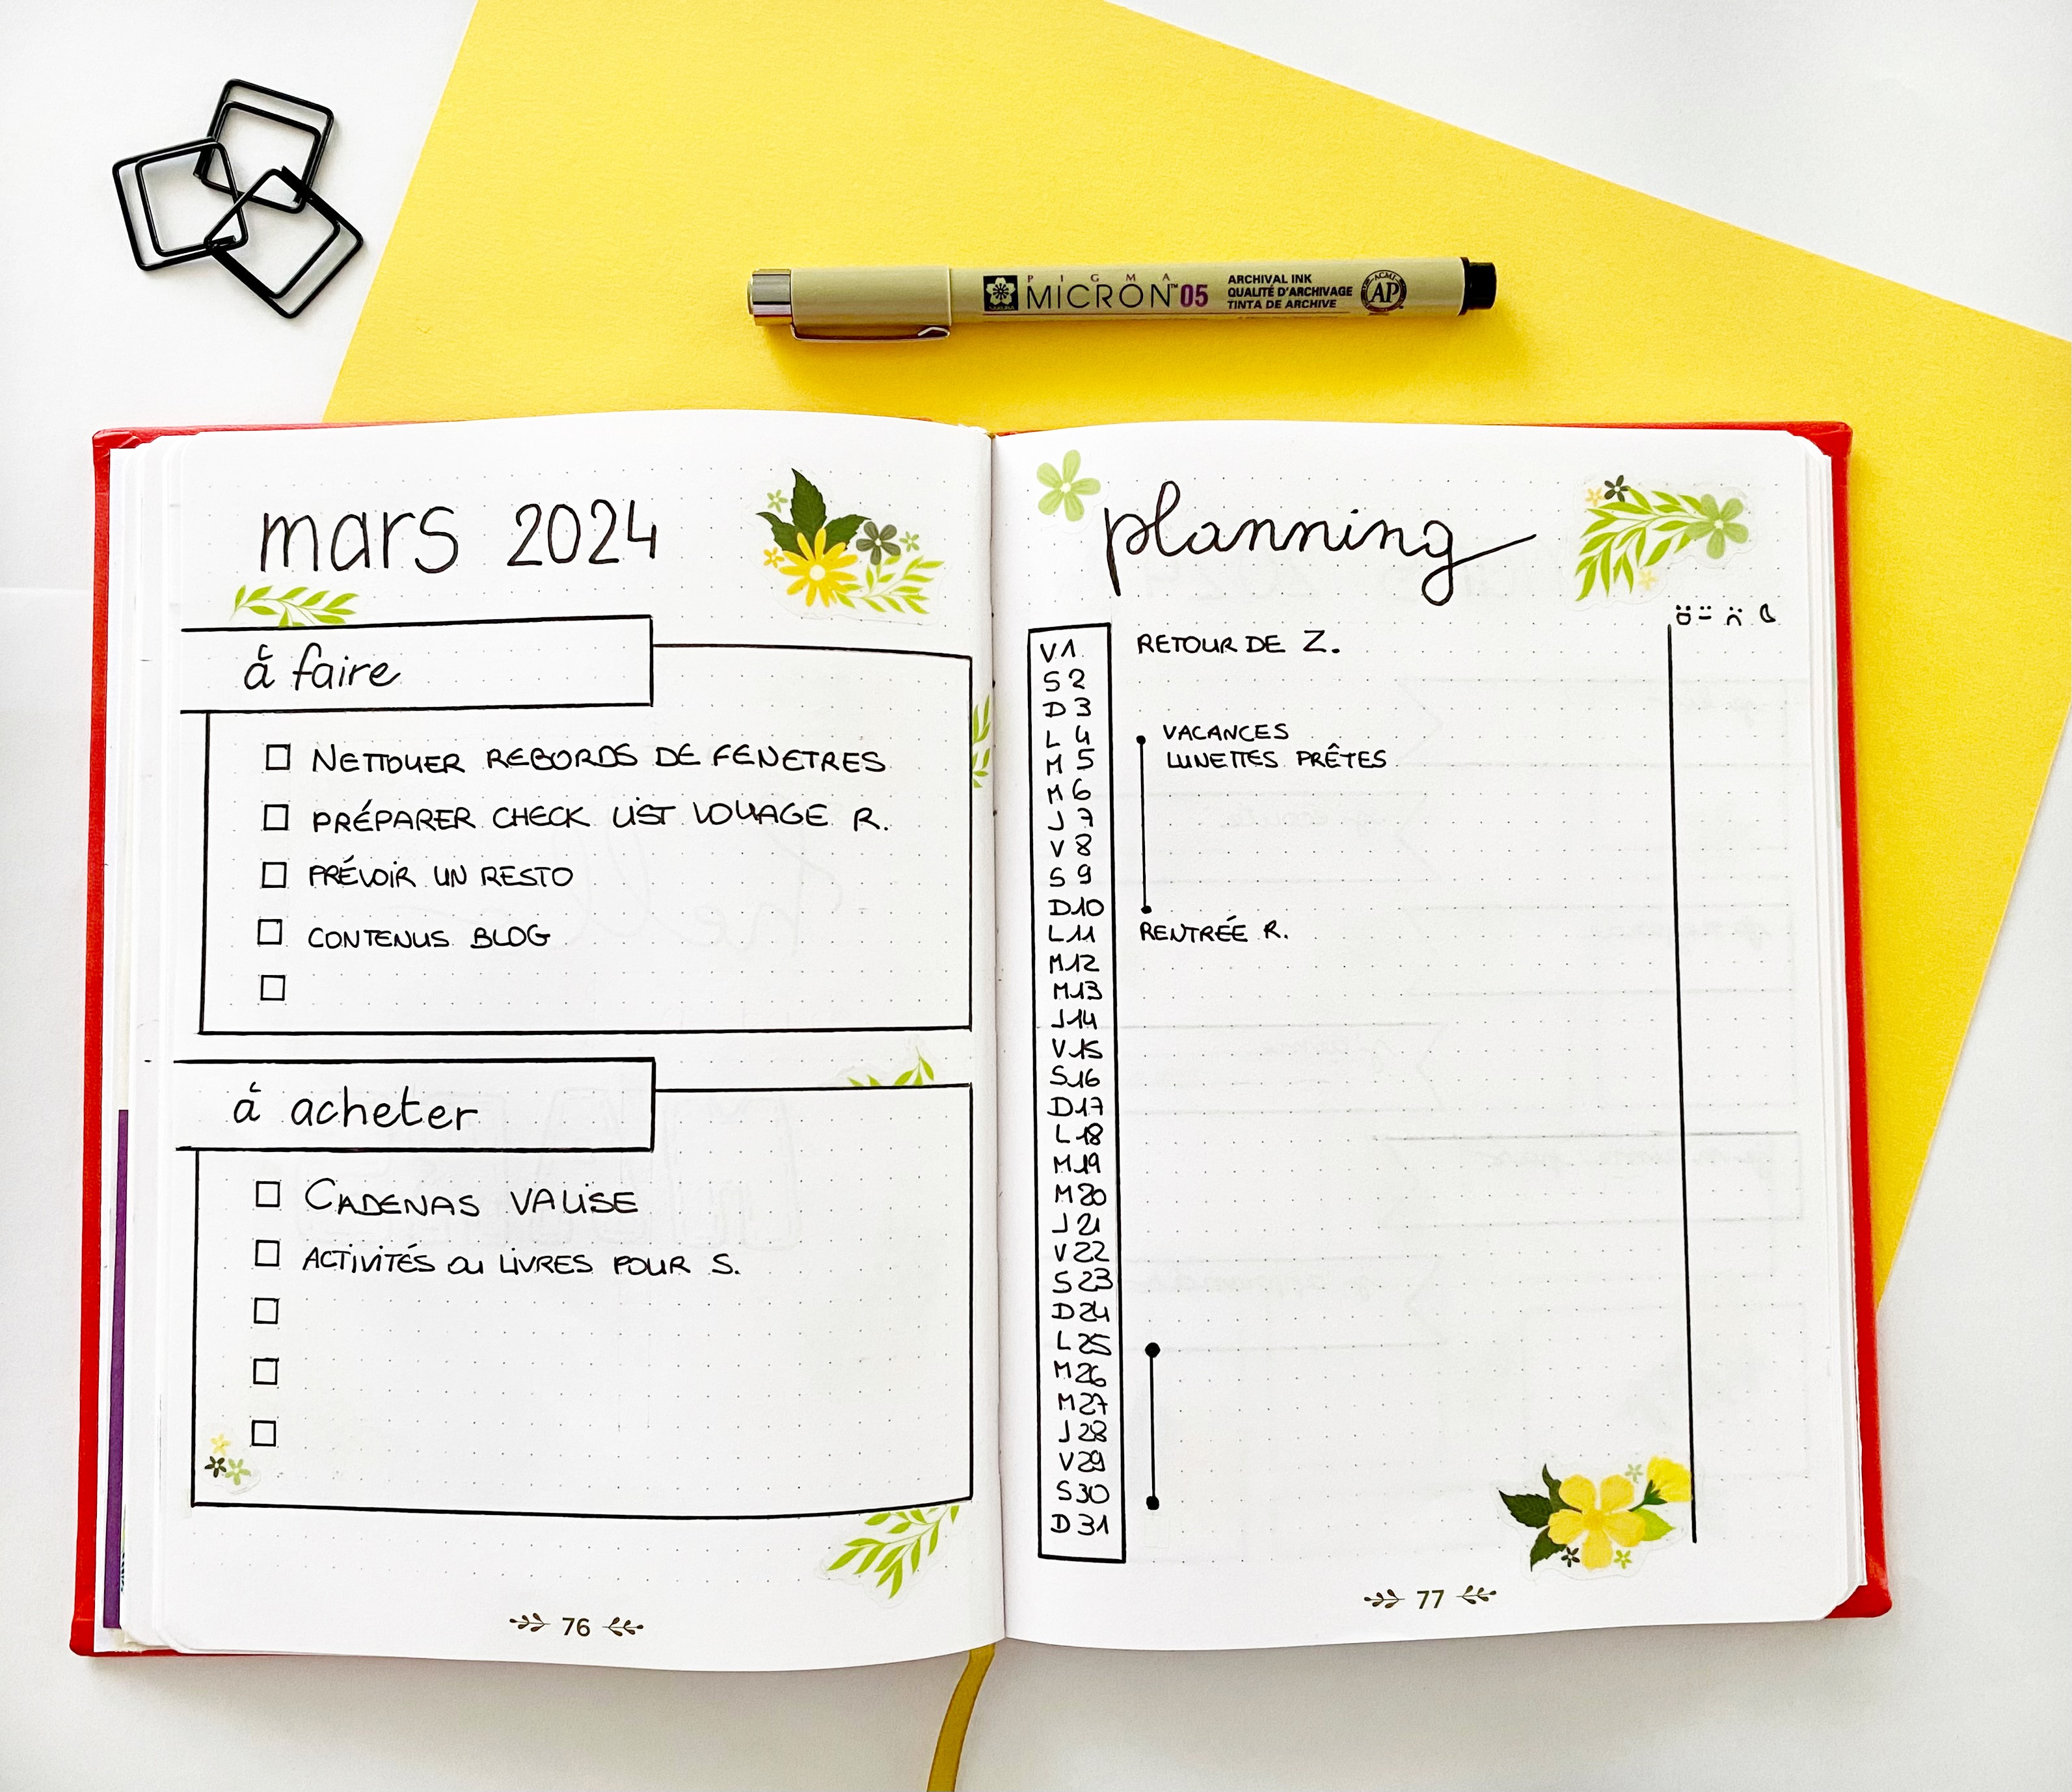 PIGMA
MICRON™ 05
ARCHIVAL INK
QUALITÉ D'ARCHIVAGE
TINTA DE ARCHIVE
ACMI
AP
mars 2024
à faire
NETTOYER REBORDS DE FENETRES
PRÉPARER CHECK LIST VOYAGE R.
PRÉVOIR UN RESTO
CONTENUS BLOG
à acheter
CADENAS VALISE
ACTIVITÉS OU LIVRES POUR S.
76
planning
V1 RETOUR DE Z.
S2
D3
L4 VACANCES
M5 LUNETTES PRÊTES
M6
J7
V8
S9
D10
L11 RENTRÉE R.
M12
M13
J14
V15
S16
D17
L18
M19
M20
J21
V22
S23
D24
L25
M26
M27
J28
V29
S30
D31
77